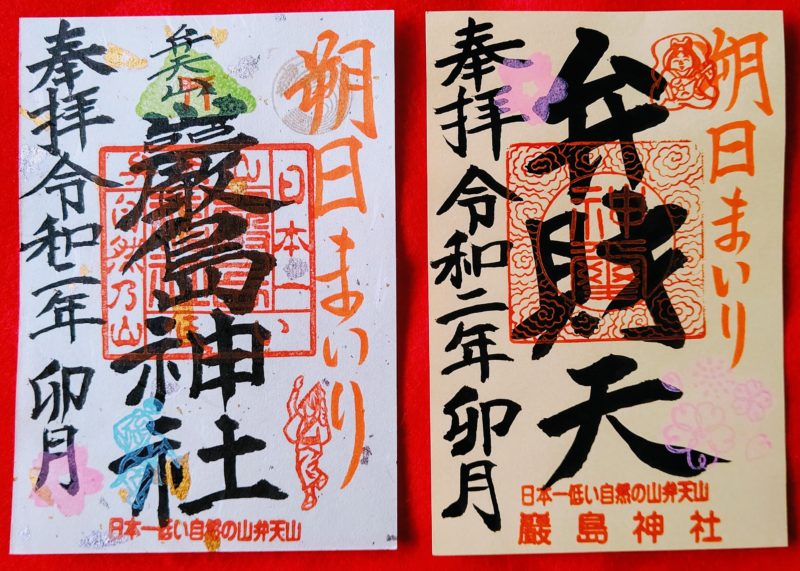 朔日まいり
弁天山
巖島神社
奉拝 令和二年 卯月
日本一
自然乃山
日本一低い自然の山弁天山
朔日まいり
弁財天
奉拝 令和二年 卯月
日本一低い自然の山弁天山
巖島神社